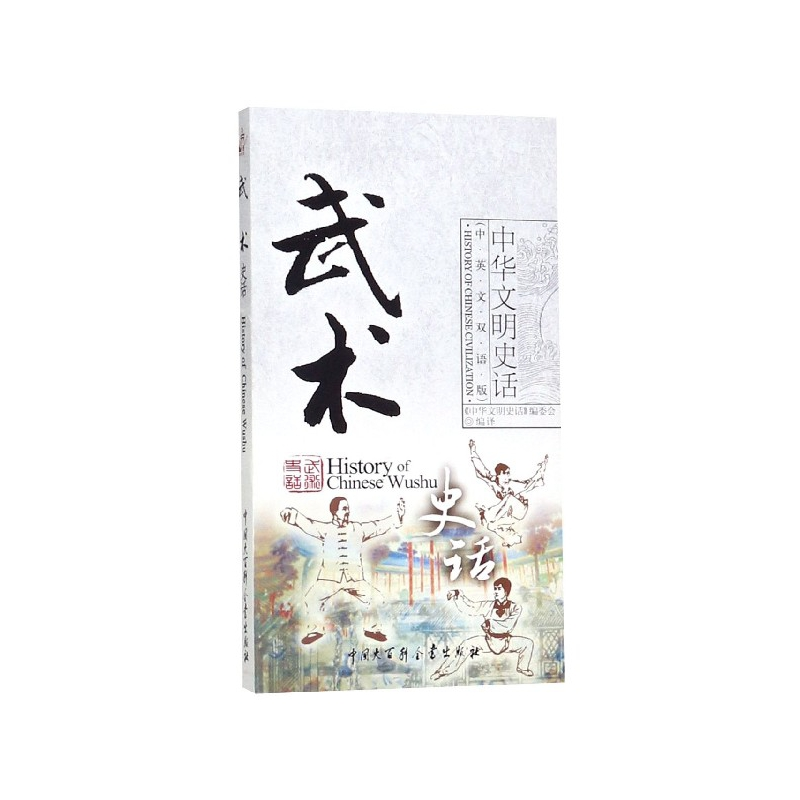 武术
History of
Chinese Wushu
武术
史话
史话
中华文明史话
(中·英·文·双·语·版)
·HISTORY OF CHINESE CIVILIZATION·
《中华文明史话》编委会
◎编译
中国大百科全书出版社
武术史话
History of Chinese Wushu
中国大百科全书出版社